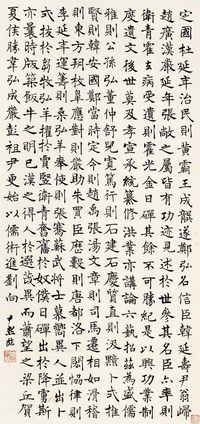 定國杜延年治民則黃霸王成龔遂鄭弘召信臣韓延壽尹翁歸
趙廣漢嚴延年張敞之屬皆有功迹見述於世參其名臣亦
衛青霍去病受遺則霍光金日磾其餘不可勝紀是以興功業制
度遺文後世莫及孝宣承統纂修洪業亦講論六藝招茲為盛儒
雅則公孫弘董仲舒兒寬篤行則石建石慶質直則汲黯卜式推
賢則韓安國鄭當時定令則趙禹張湯文章則司馬遷相如滑稽
則東方朔枚皋應對則嚴助朱買臣歷數則唐都洛下閎協律則
李延年運籌則桑弘羊奉使則張騫蘇武將士慕嚮異人並出卜
式拔於芻牧弘羊擢於賈豎衛青奮於奴僕日磾出於降虜斯
亦曩時版築飯牛之明已漢之得人於異而蕭望之梁丘賀
夏侯勝韋弘成嚴彭祖尹更始以儒術進劉向